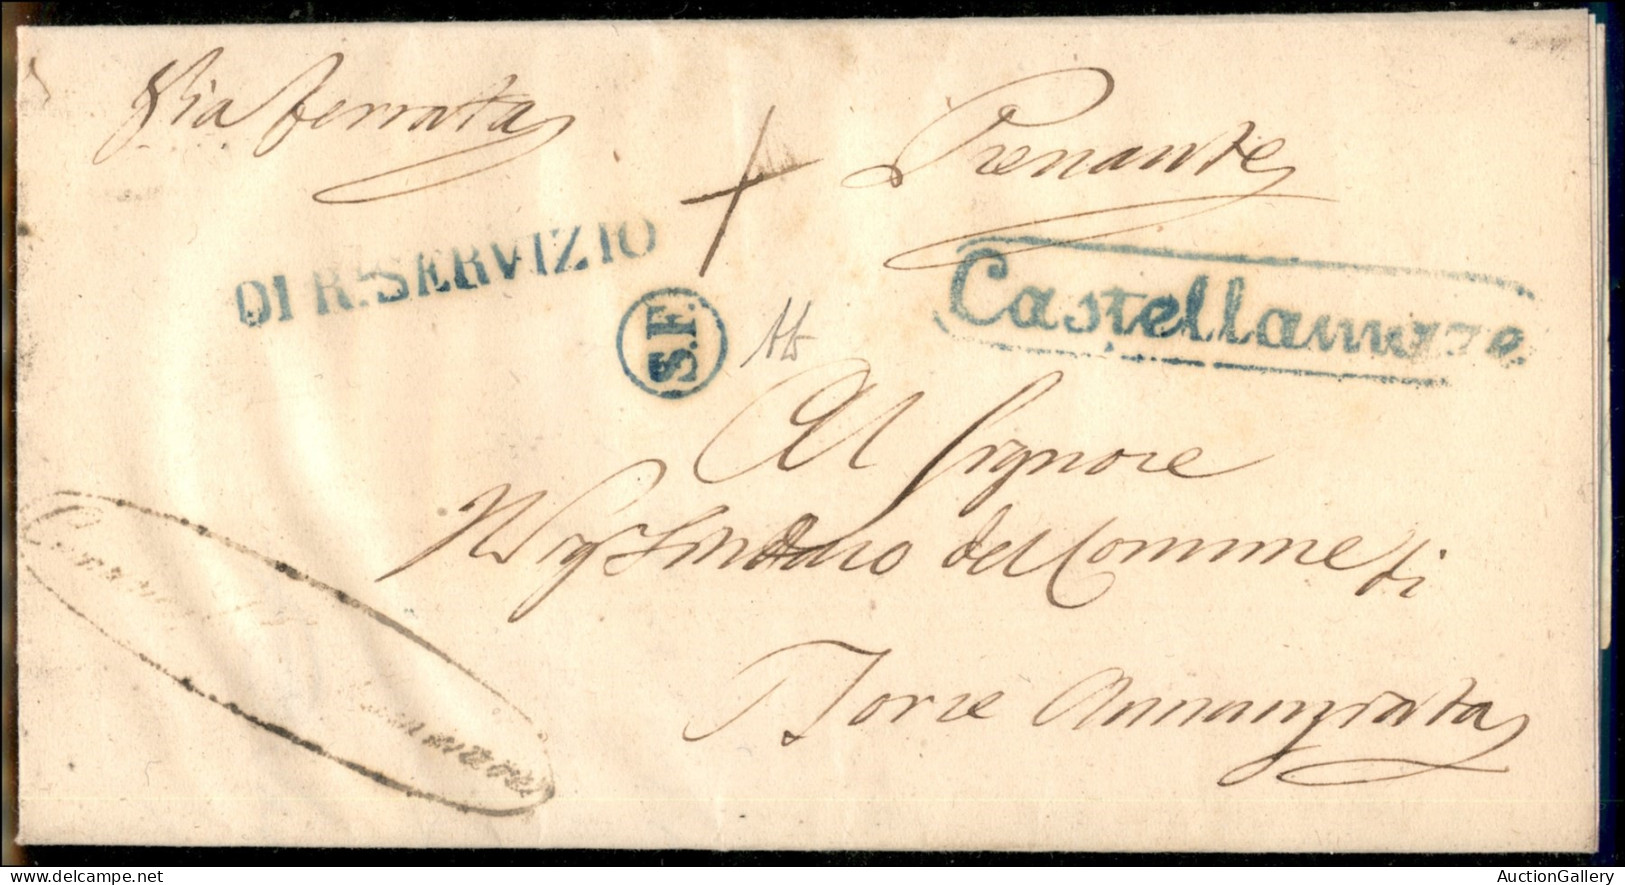 Via ferrata
Prenante
DI R. SERVIZIO
S.F.
Castellammare
Al Signore
Sindaco del Comune di
Torre Annunziata
delcampe.net
AuctionGallery